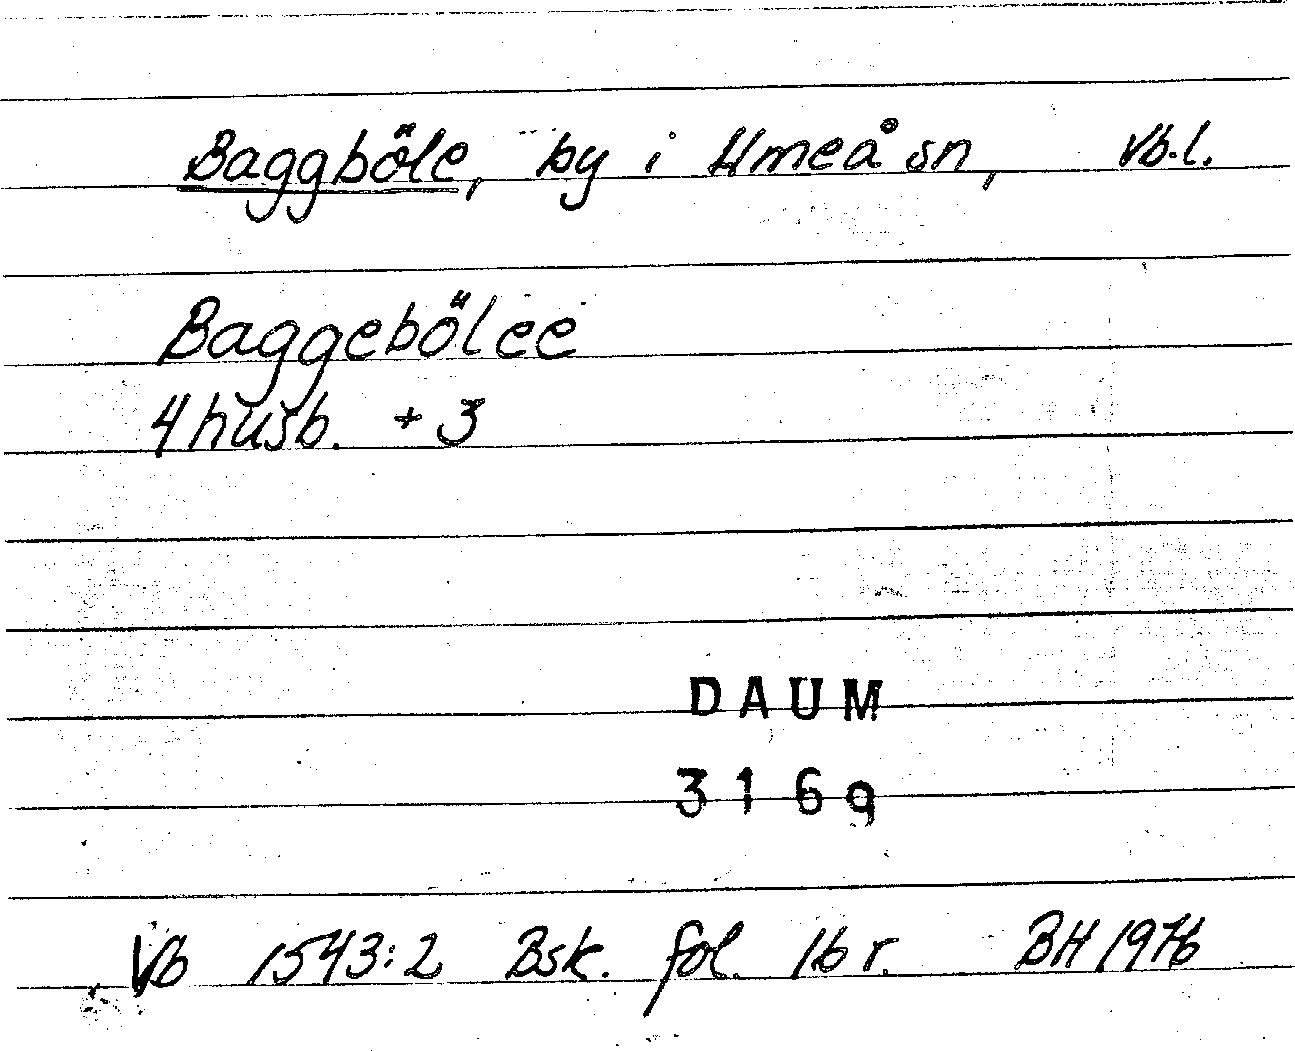 Baggböle, by i Umeå sn, Vb.l.
Baggebölee
4 husb. + 3
DAUM
3169
Vb 1543:2 Bsk. fol. 16 r. BH 1976